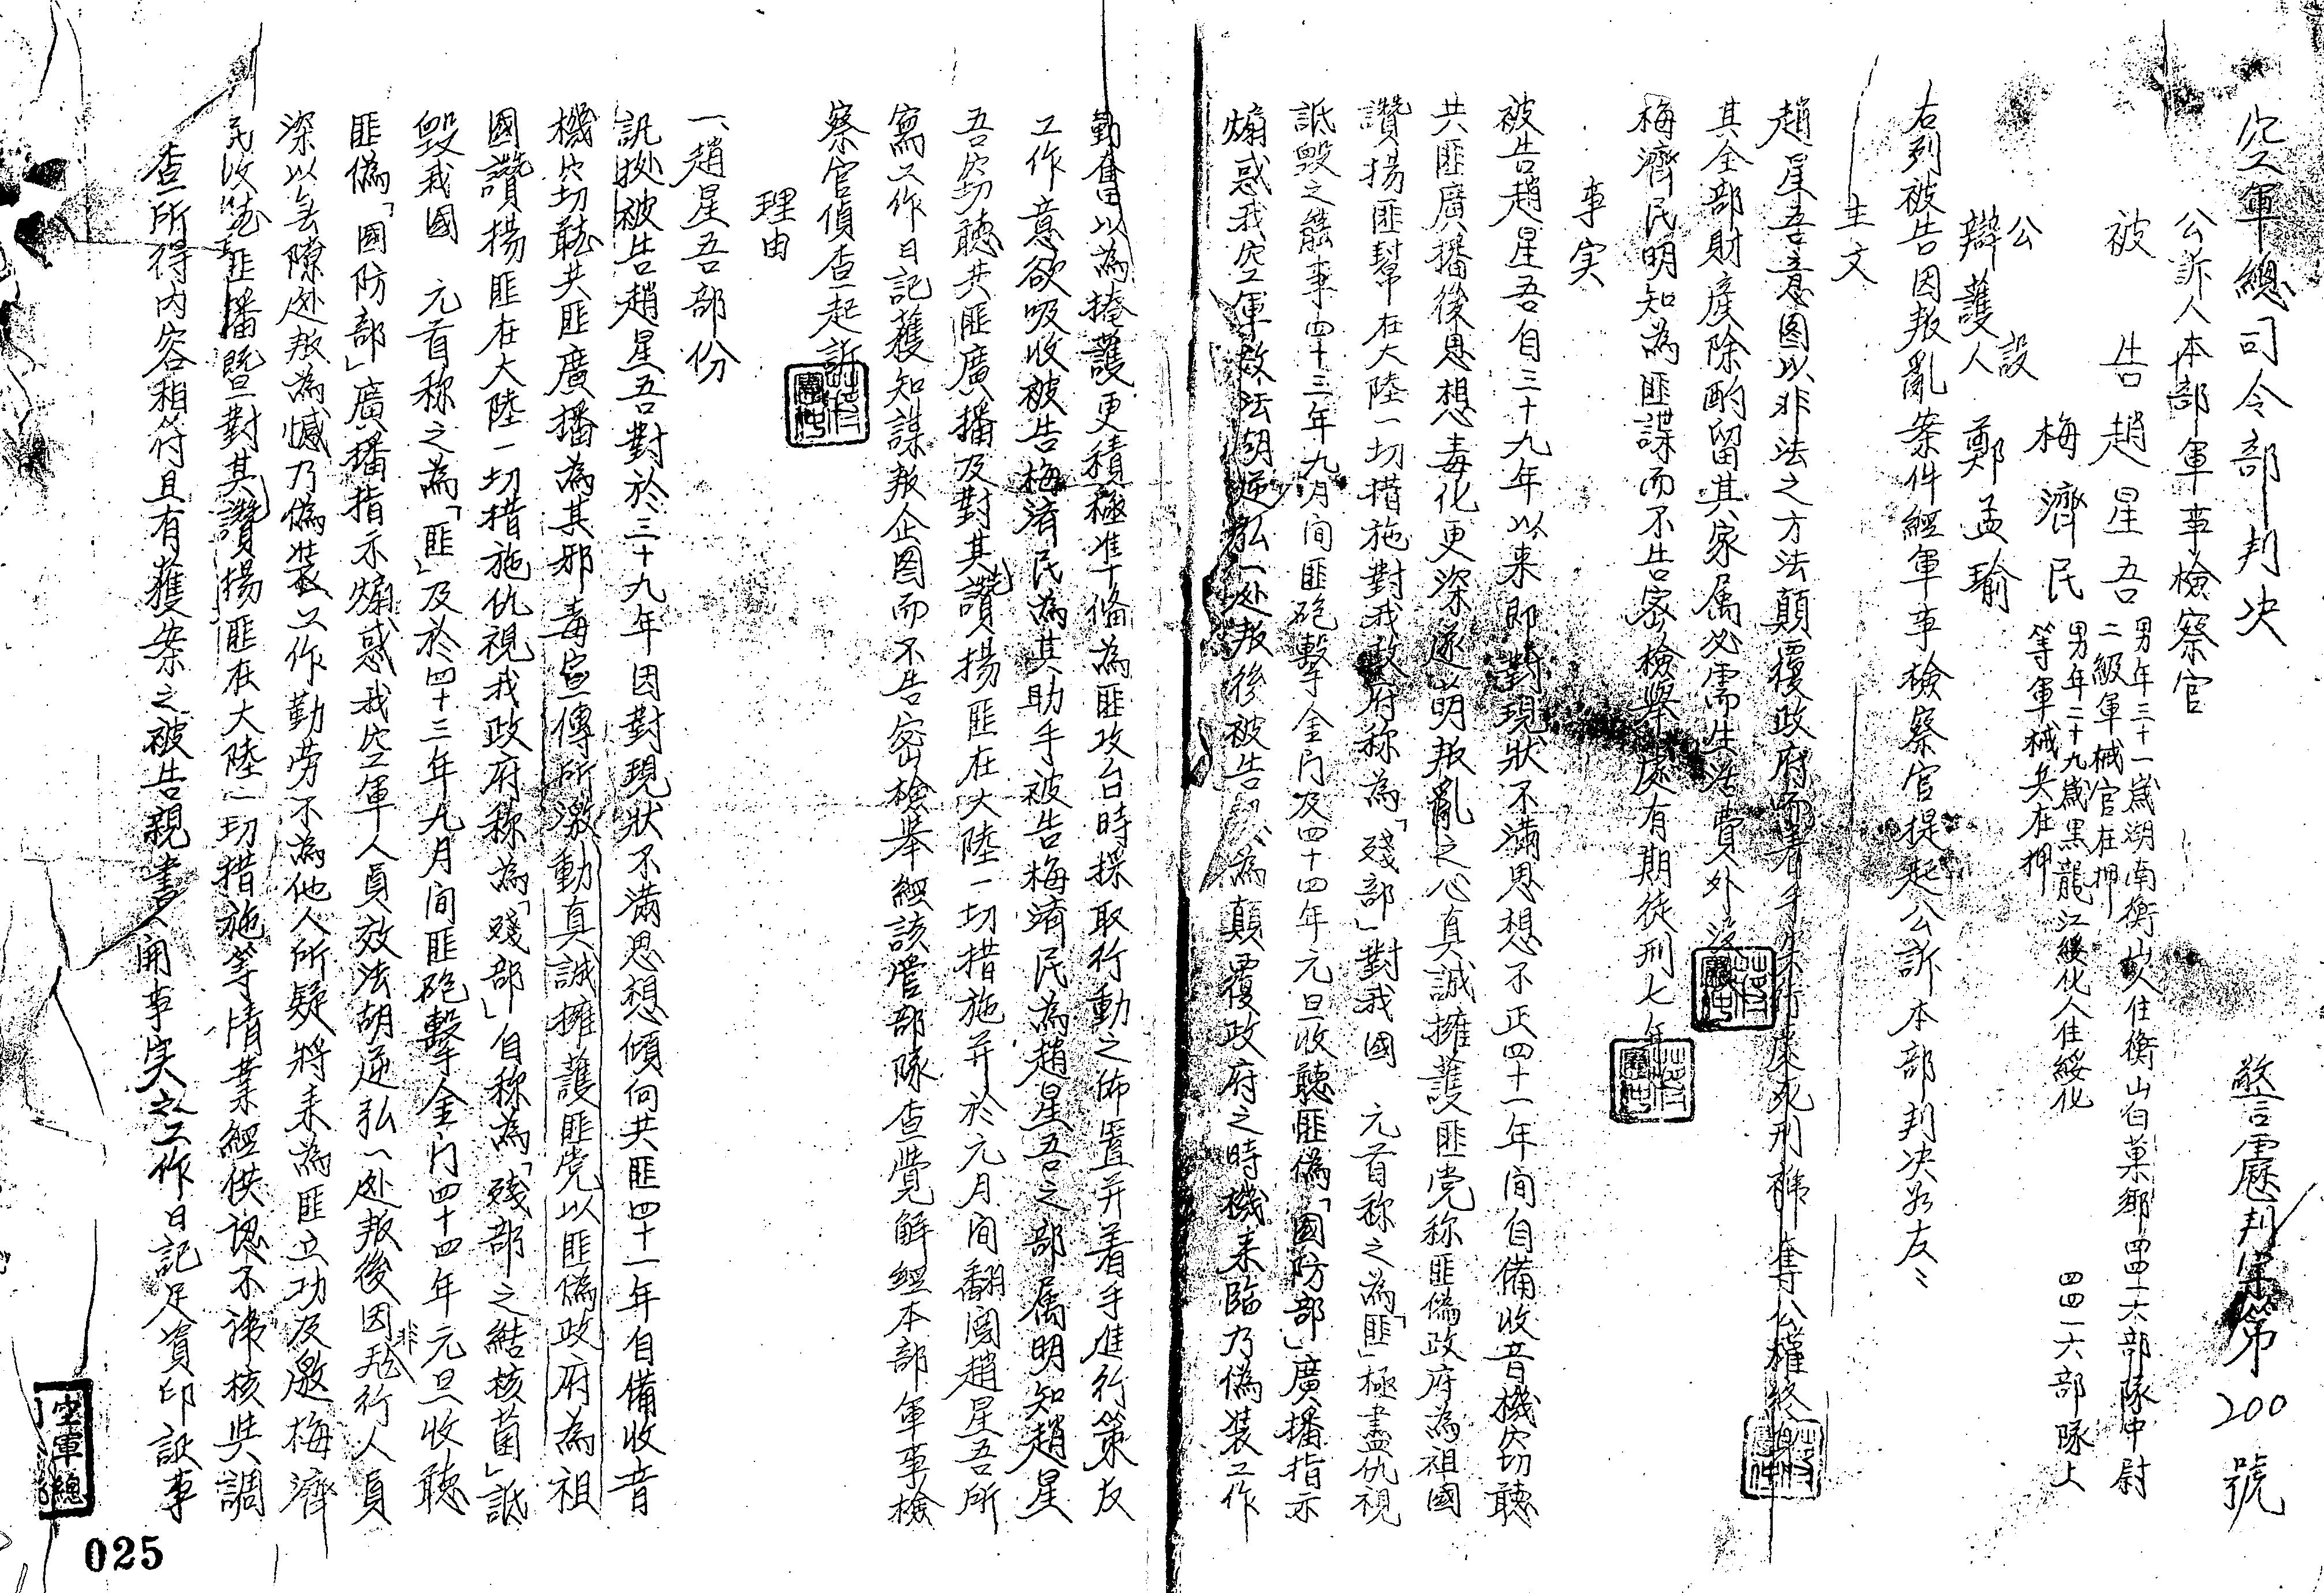 空軍總司令部判决
警霆判字第200號
公訴人本部軍事檢察官
被告趙星吾男年三十一歲湖南衡山人住衡山白菓鄉四四一六部隊中尉
二級軍械官在押
梅濟民男年二十九歲黑龍江綏化人住綏化四四一六部隊上
等軍械兵在押
公設
辯護人鄭孟瑜
右列被告因叛亂案件經軍事檢察官提起公訴本部判决如左:
主文
趙星吾意图以非法之方法顛覆政府而着手实行處死刑褫奪公權終身
其全部財産除酌留其家属必需生活費外没收
梅濟民明知為匪諜而不告密檢舉處有期徒刑七年
事实
被告趙星吾自三十九年以来即對現狀不滿思想不正四十一年间自備收音機窃聽
共匪廣播後思想毒化更深遂萌叛亂之心真誠擁護匪党称匪偽政府為祖國
讚揚匪幫在大陸一切措施對我政府称為「殘部」對我國 元首称之為「匪」極盡仇視
詆毀之能事四十三年九月间匪砲擊金门及四十四年元旦收聽匪偽「國防部」廣播指示
煽惑我空軍效法胡逆弘一处叛後被告認為顛覆政府之時機来臨乃偽装工作
勤奮以為掩護更積極准备為匪攻台時採取行動之佈置并着手進行策反
工作意欲吸收被告梅濟民為其助手被告梅濟民為趙星吾之部属明知趙星
吾窃聽共匪廣播及對其讚揚匪在大陸一切措施并於元月间翻閲趙星吾所
寫工作日記獲知謀叛企图而不告密檢举經該管部隊查覺解經本部軍事檢
察官偵查起訴
理由
一、趙星吾部份
訊据被告趙星吾對於三十九年因對現狀不滿思想傾向共匪四十一年自備收音
機窃聽共匪廣播為其邪毒宣傳所激動真誠擁護匪党以匪偽政府為祖
國讚揚匪在大陸一切措施仇視我政府称為「殘部」自称為「殘部之結核菌」詆
毀我國 元首称之為「匪」及於四十三年九月间匪砲擊金门四十四年元旦收聽
匪偽「國防部」廣播指示煽惑我空軍人員效法胡逆弘一处叛後因非飛行人員
深以無隙处叛為憾乃偽装工作勤劳不為他人所疑將来為匪立功及邀梅濟
民收听匪播暨對其讚揚匪在大陸一切措施等情業經供認不諱核與調
查所得内容相符且有獲案之被告親書人開事实之工作日記足資印證事
空軍總
025